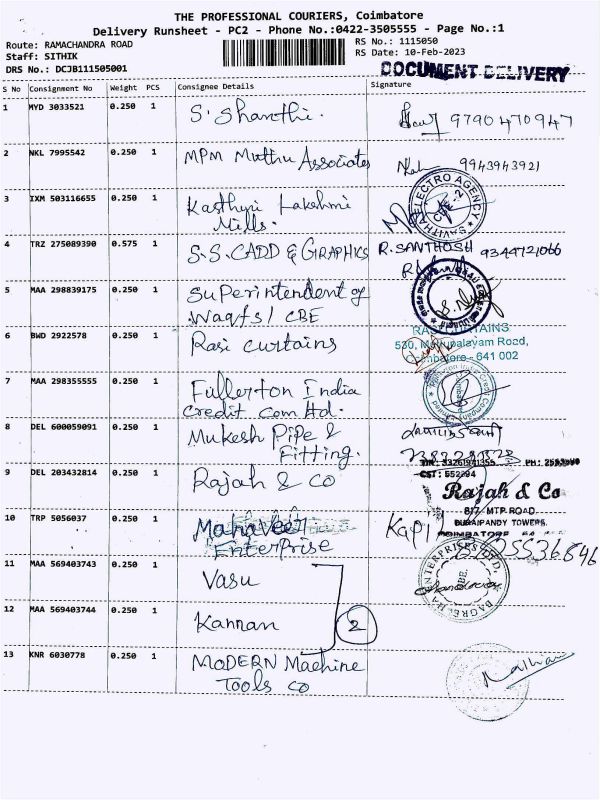 THE PROFESSIONAL COURIERS, Coimbatore
Delivery Runsheet - PC2 - Phone No.:0422-3505555 - Page No.:1
Route: RAMACHANDRA ROAD
Staff: SITHIK
DRS No.: DCJB111505001
RS No.: 1115050
RS Date: 10-Feb-2023
DOCUMENT DELIVERY
S No Consignment No Weight PCS Consignee Details Signature
1 MYD 3033521 0.250 1 S. Shanthi. 9790470947
2 NKL 7995542 0.250 1 MPM Muthu Associates 9943943921
3 IXM 503116655 0.250 1 Kasthuri Lakshmi
Mills.
SAVITHA ELECTRO AGENCY
CBE-2
4 TRZ 275089390 0.575 1 S.S. CADD & GRAPHICS R. SANTHOSH 9344721066
5 MAA 298839175 0.250 1 Superintendent of
Waqfs / CBE
6 BWD 2922578 0.250 1 Rasi curtains
RASI CURTAINS
530, Mettupalayam Road,
Coimbatore - 641 002
7 MAA 298355555 0.250 1 Fullerton India
Credit com ltd.
8 DEL 600059091 0.250 1 Mukesh Pipe &
Fitting.
9 DEL 203432814 0.250 1 Rajah & Co
Rajah & Co
817, MTP ROAD,
DURAIPANDY TOWERS,
COIMBATORE
10 TRP 5056037 0.250 1 Mahaveer
Enterprise
Kapi
11 MAA 569403743 0.250 1 Vasu
12 MAA 569403744 0.250 1 Kannan 2
13 KNR 6030778 0.250 1 MODERN Machine
Tools co